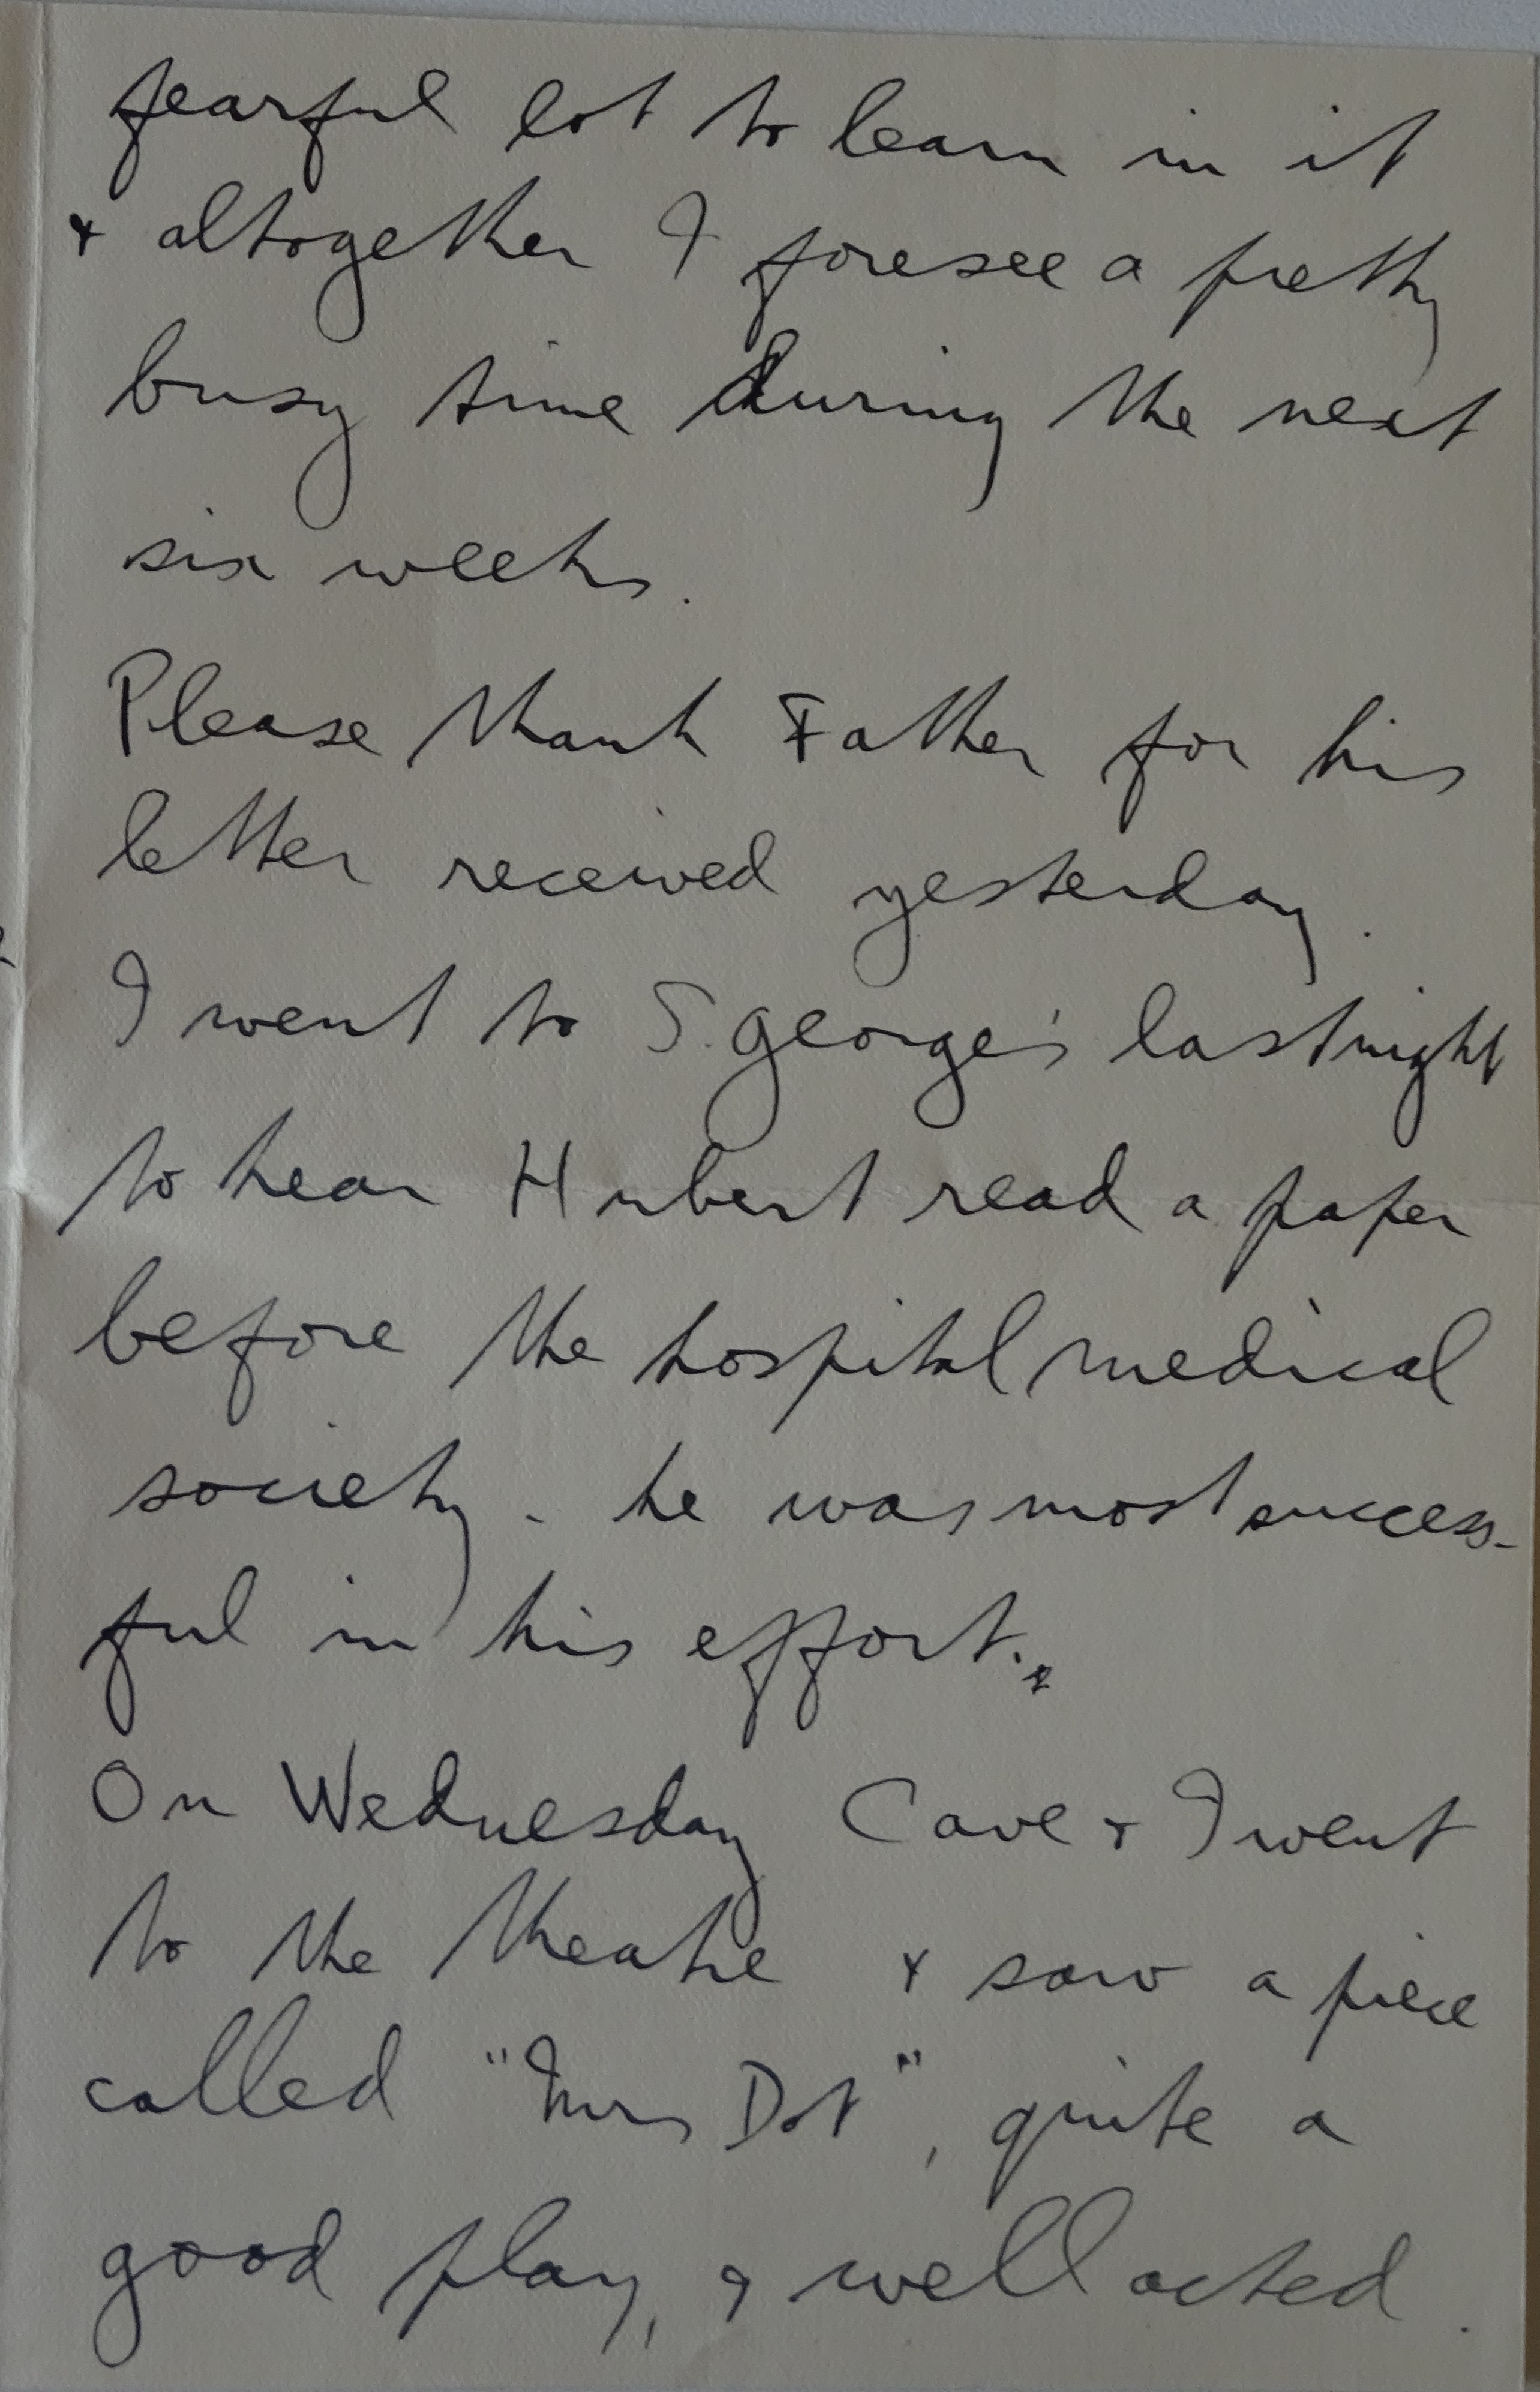 fearful lot to learn in it
& altogether I foresee a pretty
busy time during the next
six weeks.
Please thank Father for his
letter received yesterday.
I went to S. George's last night
to hear Hubert read a paper
before the hospital medical
society - he was most success-
ful in his effort.
On Wednesday Cave & I went
to the theatre & saw a piece
called "Mrs Dot", quite a
good play, & well acted.